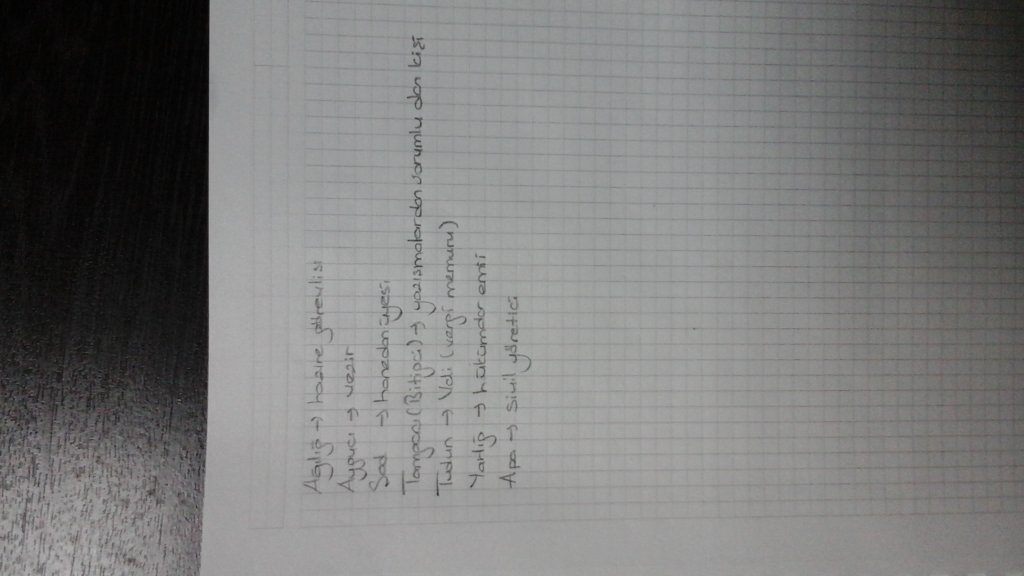 Agılığ → hazine görevlisi
Ayguci → vezir
Şad → hanedan üyesi
Tamgacı (Bitigci) → yazışmalardan sorumlu olan kişi
Tudun → Vali (vergi memuru)
Yarlığ → hükümdar emri
Apa → sivil yönetici